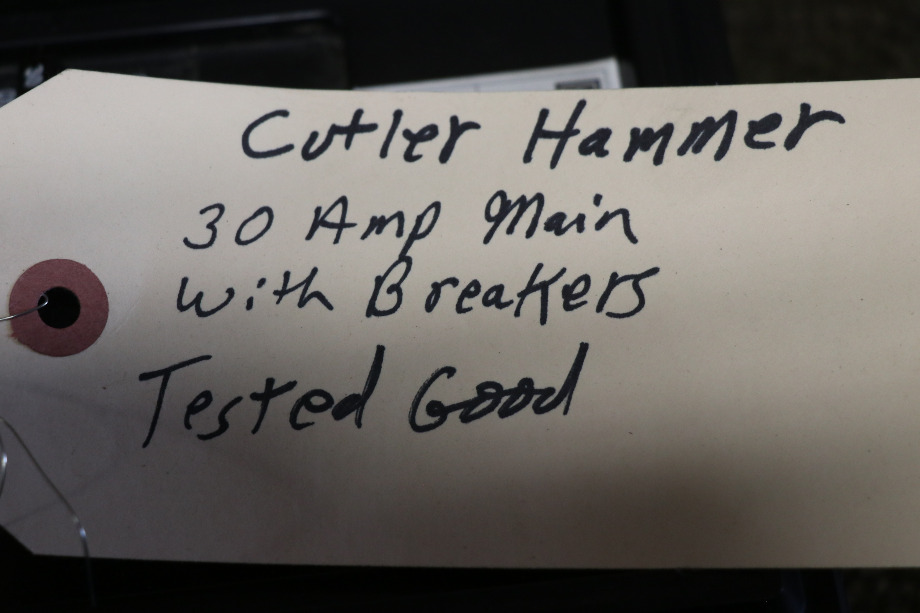 Cutler Hammer
30 Amp Main
With Breakers
Tested Good